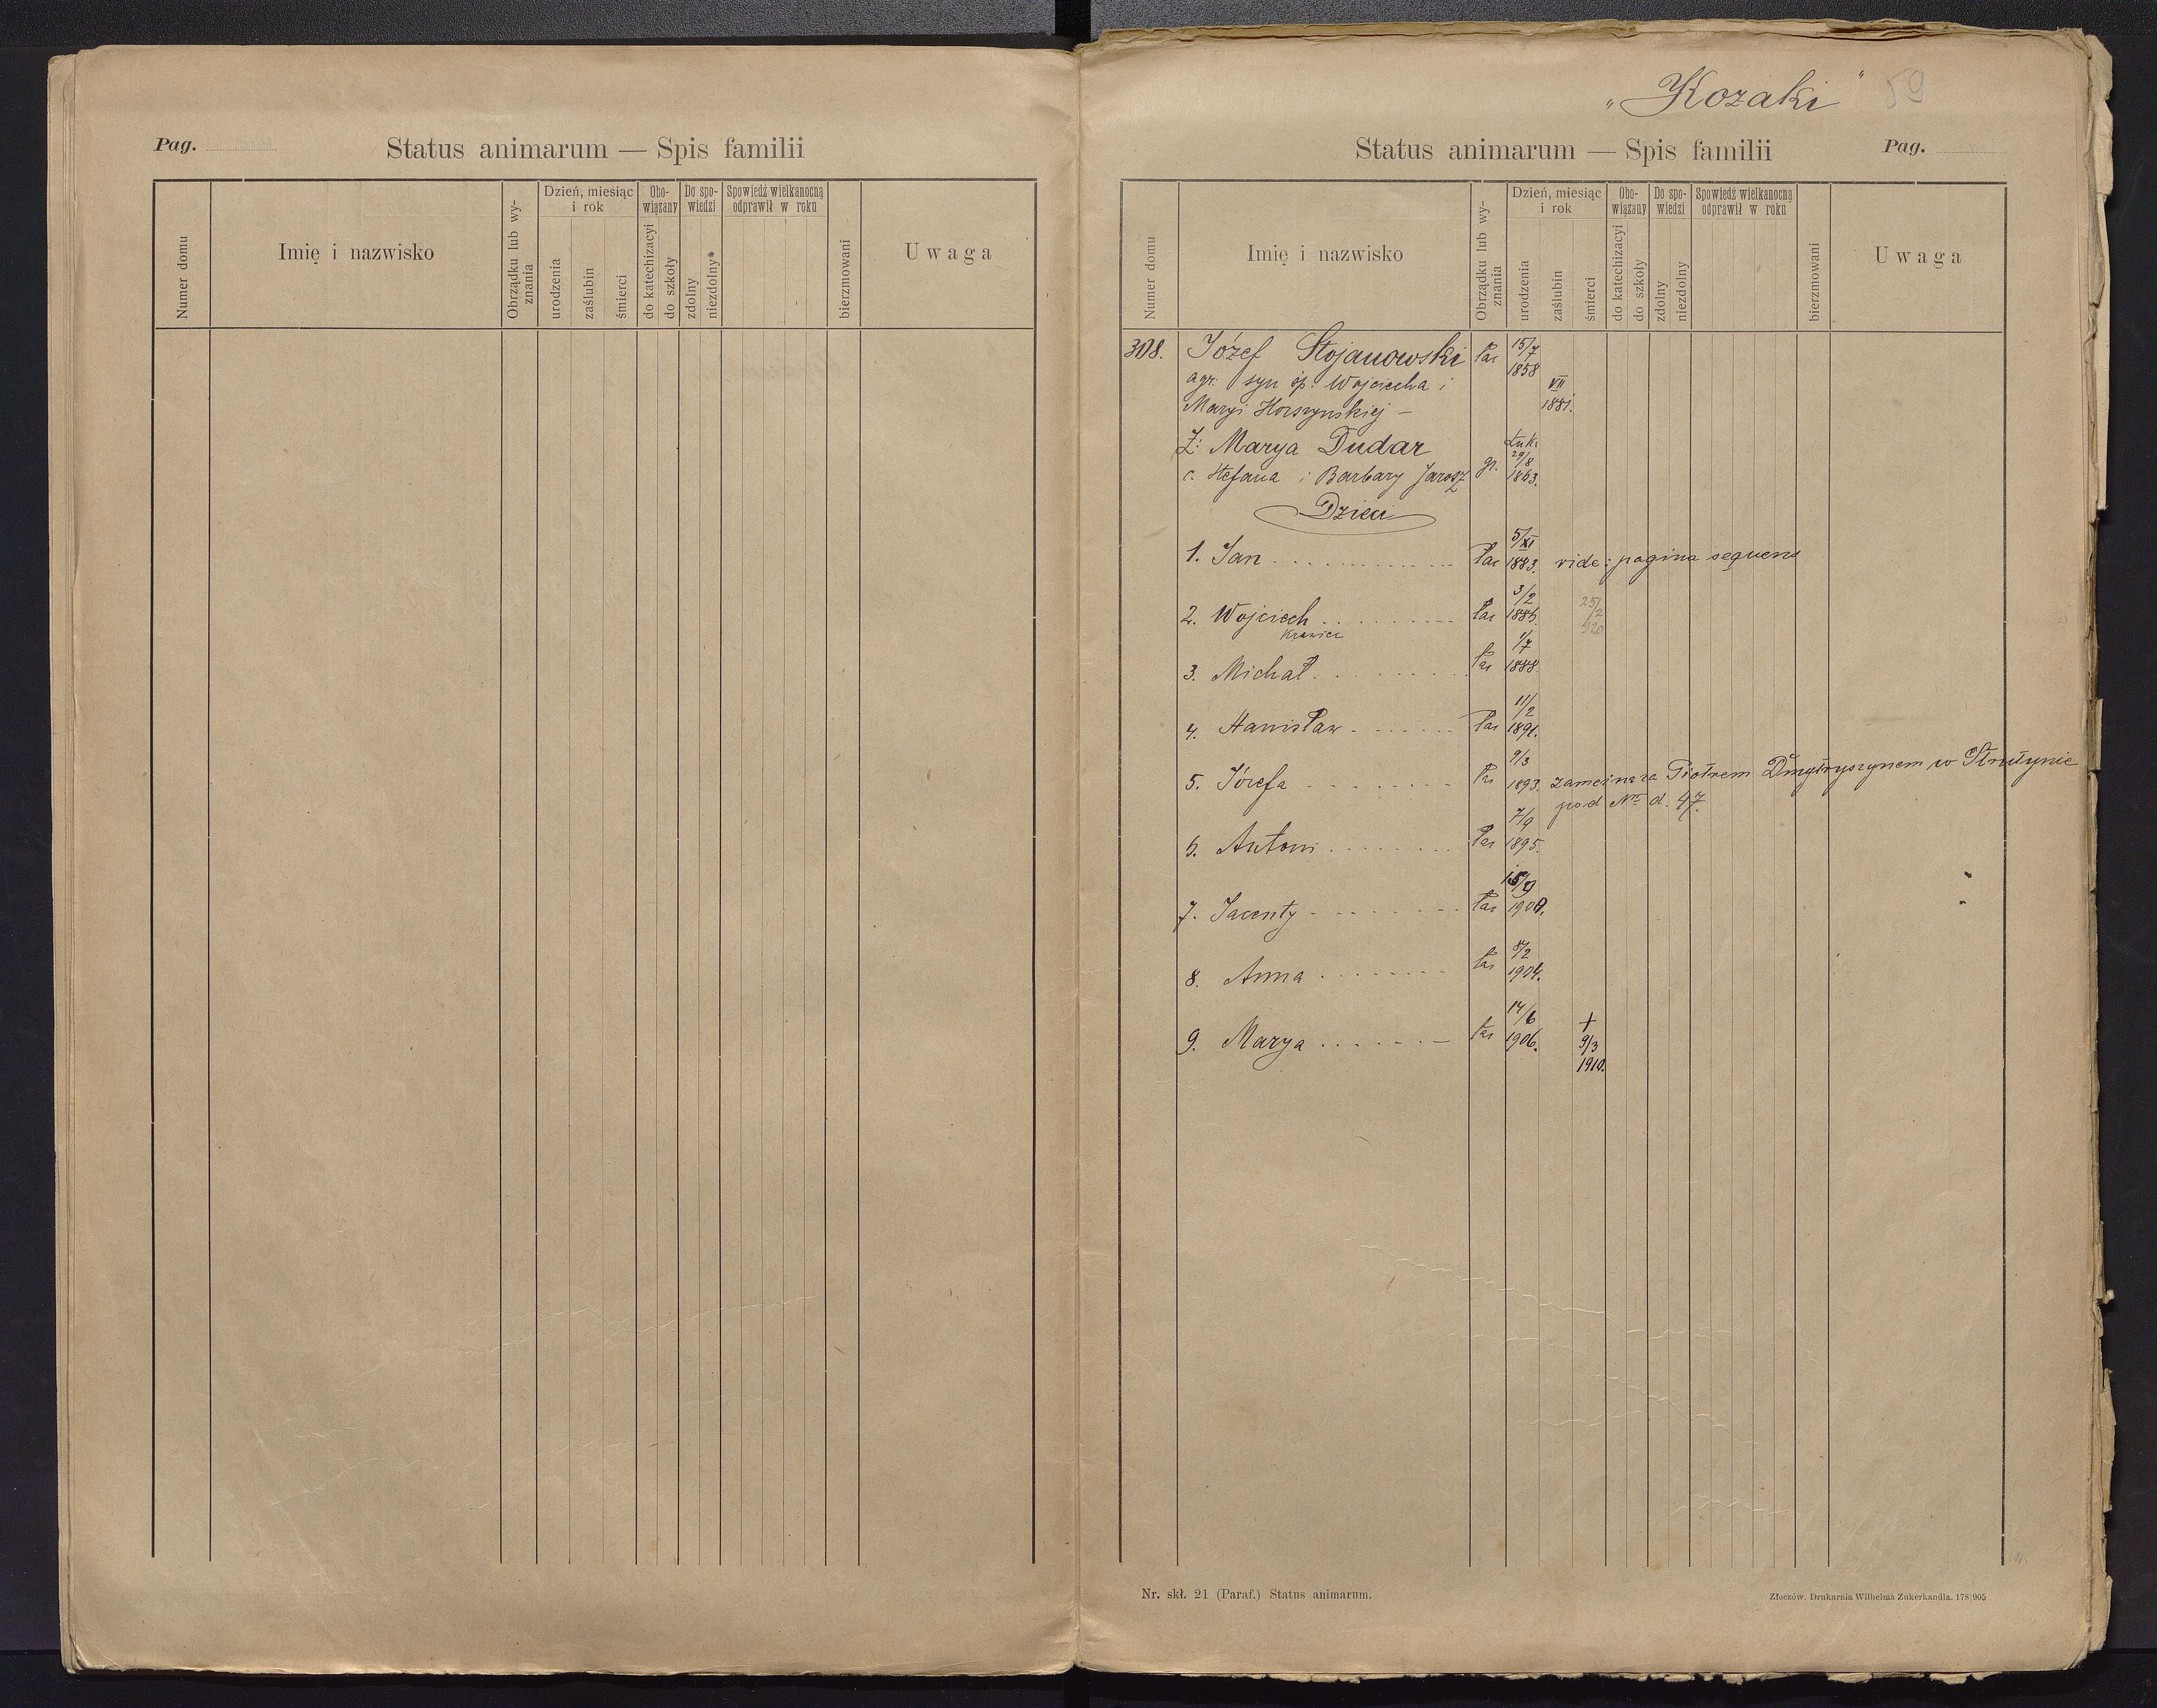 Pag.
Status animarum — Spis familii
Numer domu
Imię i nazwisko
Obrządku lub wy-
znania
Dzień, miesiąc
i rok
urodzenia
zaślubin
śmierci
Obo-
wiązany
do katechizacyi
do szkoły
Do spo-
wiedzi
zdolny
niezdolny
Spowiedź wielkanocną
odprawił w roku
bierzmowani
Uwaga
"Kozaki" 59
Status animarum — Spis familii
Pag.
Numer domu
Imię i nazwisko
Obrządku lub wy-
znania
Dzień, miesiąc
i rok
urodzenia
zaślubin
śmierci
Obo-
wiązany
do katechizacyi
do szkoły
Do spo-
wiedzi
zdolny
niezdolny
Spowiedź wielkanocną
odprawił w roku
bierzmowani
Uwaga
308. Józef Stojanowski łac 15/7 1858
agr. syn śp. Wojciecha i VII
Maryi Horszyńskiej – 1881.
Ż: Marya Dudar
c. Stefana i Barbary Jarosz gr. 29/8 1863.
Dzieci
1. Jan łac 5/XI 1883. vide: pagina sequens
2. Wojciech łac 3/2 1886. 25/2 920
Krawiec
3. Michał łac 1/7 1888
4. Stanisław łac 11/2 1891.
5. Józefa łac 9/3 1893. za Piotrem Dmytryszynem w Strutynie
pod Nr d. 47.
6. Antoni łac 7/9 1895.
7. Jacenty łac 15/9 1900.
8. Anna łac 8/2 1904.
9. Marya łac 14/6 1906. + 9/3 1910.
Nr. skł. 21 (Paraf.) Status animarum.
Złoczów. Drukarnia Wilhelma Zukerkandla. 178|905